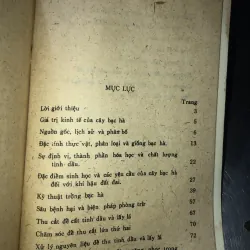 MỤC LỤC
Trang
Lời giới thiệu 3
Giá trị kinh tế của cây bạc hà 5
Nguồn gốc, lịch sử và phân bố 6
Đặc tính thực vật, phân loại và giống bạc hà 13
Sự định vị, thành phần hóa học và chất lượng
tinh dầu. 22
Đặc điểm sinh học và các yêu cầu của cây bạc hà
đối với khí hậu đất đai.
Kỹ thuật trồng bạc hà
Sâu bệnh hại và biện pháp phòng trừ
Thu cắt để cất tinh dầu và lấy lá
Chăm sóc để thu cắt lứa thứ hai 72
Xử lý nguyên liệu để thu tinh dầu và lấy lá